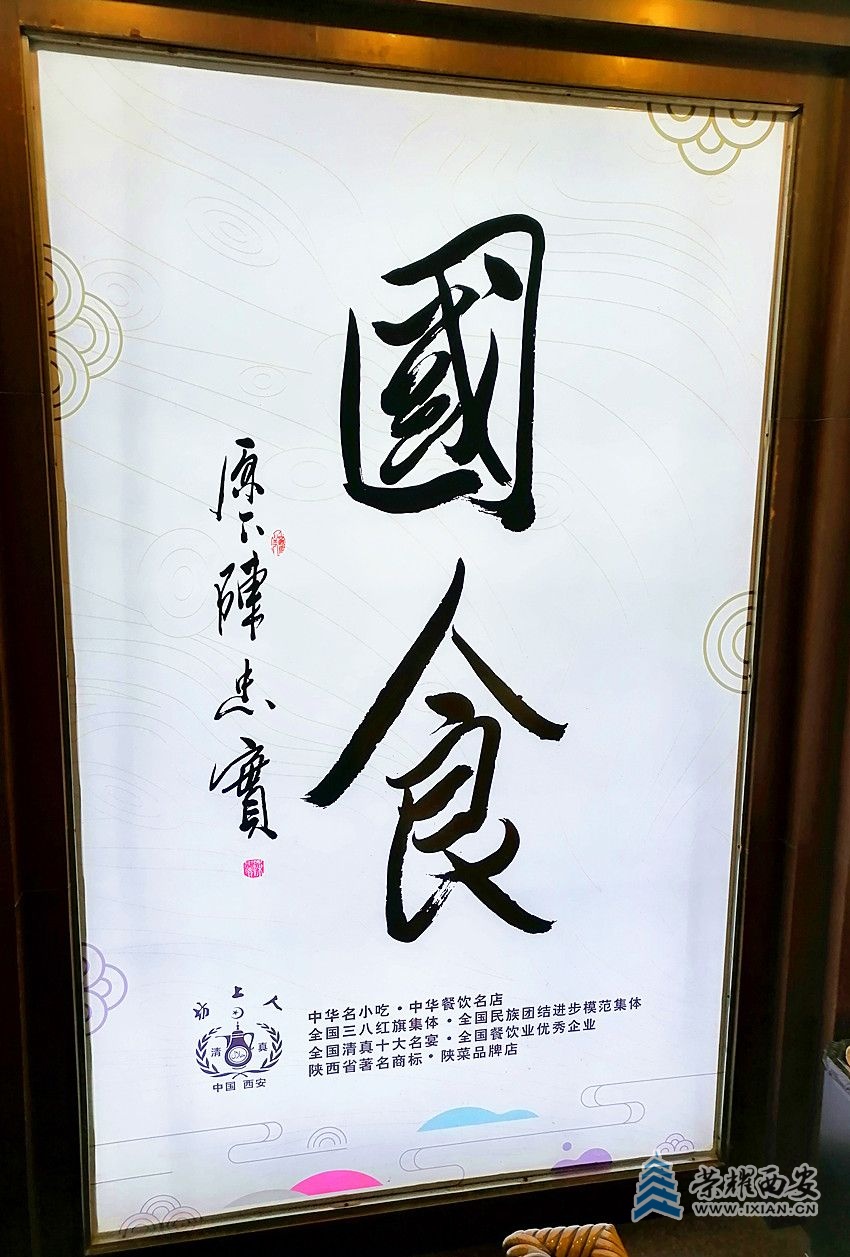 國食
原下陳忠實
人上の
清 真
中国 西安
中华名小吃·中华餐饮名店
全国三八红旗集体·全国民族团结进步模范集体
全国清真十大名宴·全国餐饮业优秀企业
陕西省著名商标·陕菜品牌店
荣耀西安
WWW.IXIAN.CN